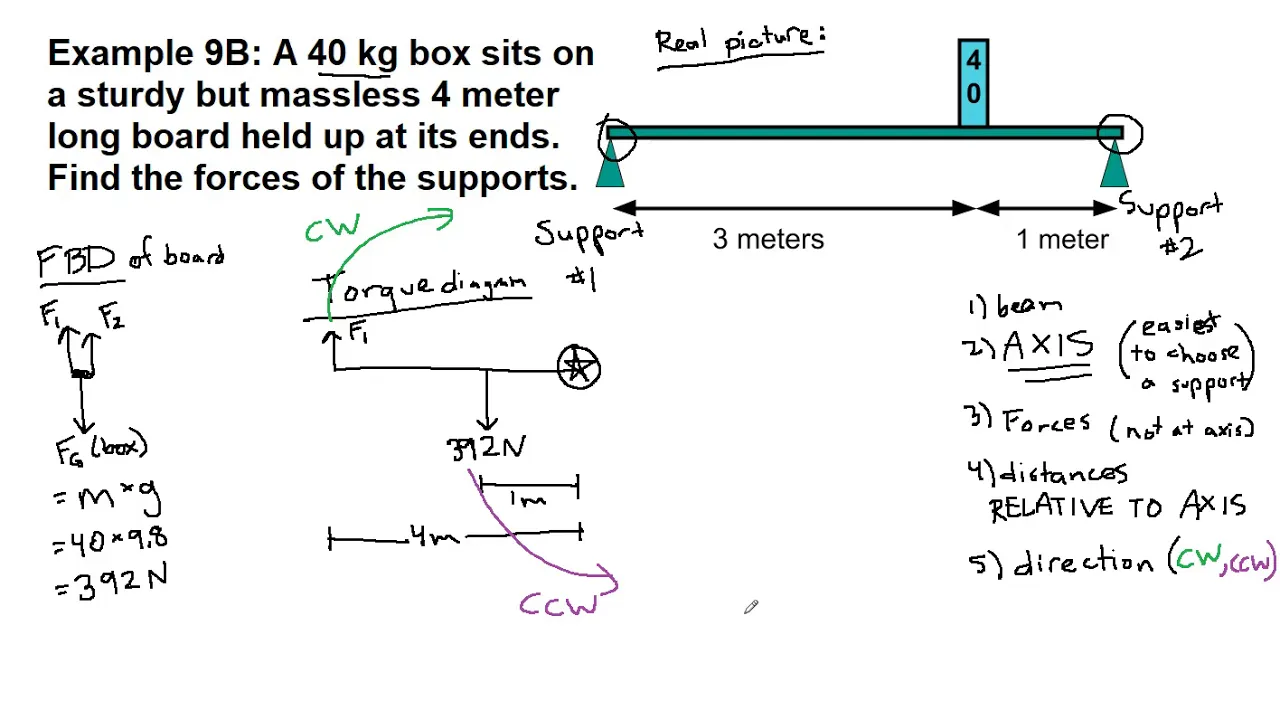 Example 9B: A 40 kg box sits on
a sturdy but massless 4 meter
long board held up at its ends.
Find the forces of the supports.
Real picture:
4
0
3 meters
1 meter
Support
#1
Support
#2
FBD of board
F1
F2
FG (box)
= m * g
= 40 * 9.8
= 392 N
CW
Torque diagram
F1
392N
1m
4m
CCW
1) beam
2) AXIS (easiest
to choose
a support)
3) Forces (not at axis)
4) distances
RELATIVE TO AXIS
5) direction (CW, CCW)